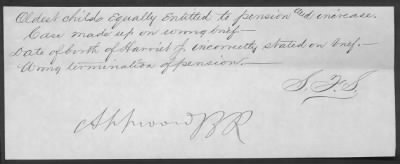 Oldest child equally entitled to pension and increase.
Case made up on wrong brief —
Date of birth of Harriet J. incorrectly stated on brief. —
Wrong termination of pension. —
S. F. S.
Approved BR